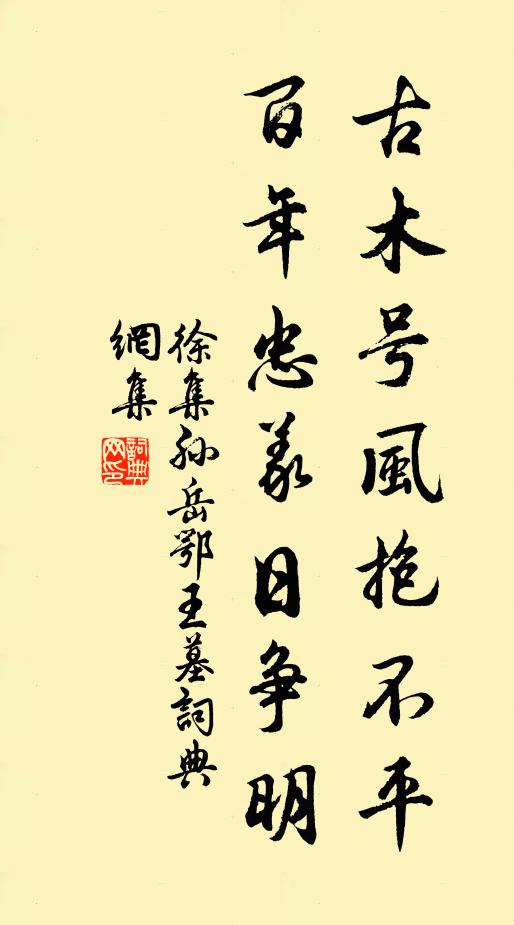 古木号風抱不平
百年忠義日争明
徐集孙岳鄂王墓詞典
網集
詞典
网印